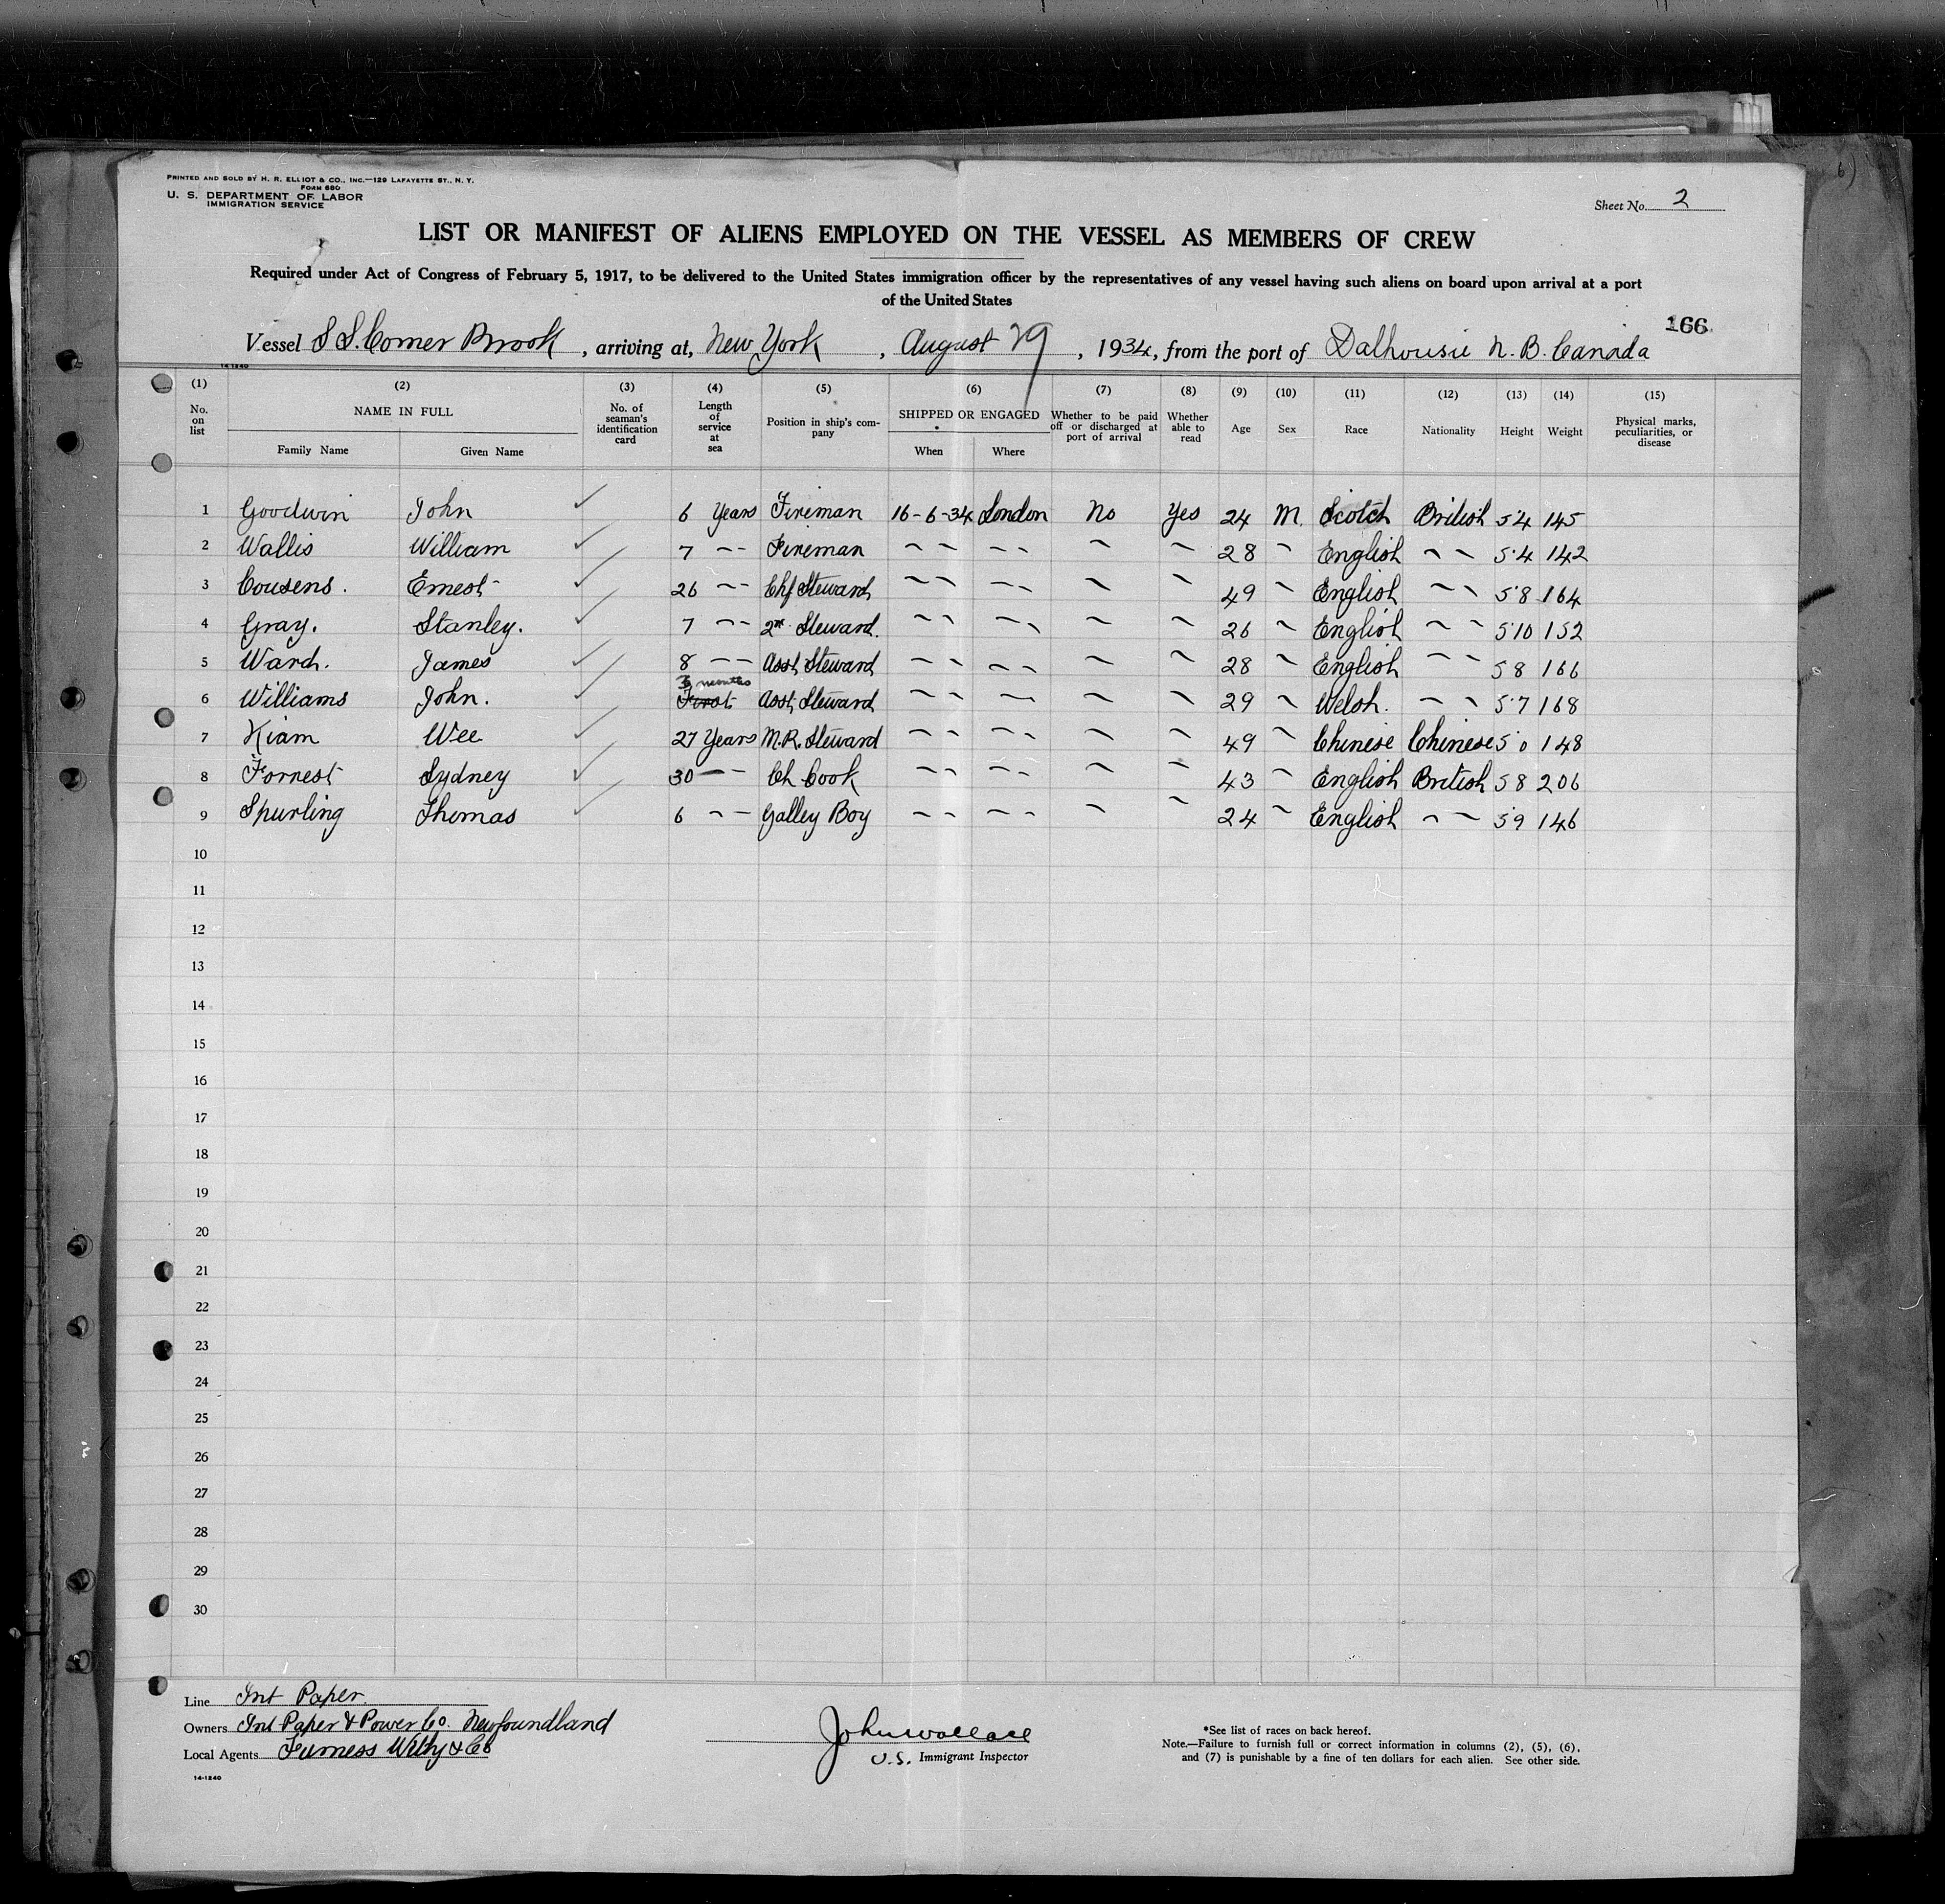 PRINTED AND SOLD BY H. R. ELLIOT & CO., INC.—129 LAFAYETTE ST., N. Y.
FORM 680
U. S. DEPARTMENT OF LABOR
IMMIGRATION SERVICE
Sheet No. 2
LIST OR MANIFEST OF ALIENS EMPLOYED ON THE VESSEL AS MEMBERS OF CREW
Required under Act of Congress of February 5, 1917, to be delivered to the United States immigration officer by the representatives of any vessel having such aliens on board upon arrival at a port
of the United States
166
Vessel S S. Corner Brook, arriving at, New York, August 29, 1934, from the port of Dalhousie N. B. Canada
14-1240
(1) (2) (3) (4) (5) (6) (7) (8) (9) (10) (11) (12) (13) (14) (15)
No. on list NAME IN FULL Family Name Given Name No. of seaman's identification card Length of service at sea Position in ship's company SHIPPED OR ENGAGED When Where Whether to be paid off or discharged at port of arrival Whether able to read Age Sex Race Nationality Height Weight Physical marks, peculiarities, or disease
1 Goodwin John ✓ 6 Years Fireman 16-6-34 London No Yes 24 M. Scotch British 5'4 145
2 Wallis William ✓ 7 -- Fireman -- -- - - 28 - English -- 5'4 142
3 Cousens. Ernest ✓ 26 -- Chf Steward -- -- - - 49 - English -- 5'8 164
4 Gray. Stanley. ✓ 7 -- 2nd Steward. -- -- - - 26 - English -- 5'10 152
5 Ward. James ✓ 8 -- Asst Steward -- -- - - 28 - English -- 5 8 166
3 months
6 Williams John. ✓ First Asst, Steward -- -- - - 29 - Welsh. -- 5'7 168
7 Kiam Wee ✓ 27 Years M.R. Steward -- -- - - 49 - Chinese Chinese 5'0 148
8 Forrest Sydney ✓ 30 -- Ch Cook -- -- - - 43 - English British 5 8 206
9 Spurling Thomas ✓ 6 -- Galley Boy -- -- - - 24 - English -- 5'9 146
10
11
12
13
14
15
16
17
18
19
20
21
22
23
24
25
26
27
28
29
30
Line Int Paper.
Owners Int Paper & Power Co. Newfoundland
Local Agents Furness Withy & Co
14-1240
John Wallace
U.S. Immigrant Inspector
*See list of races on back hereof.
Note.—Failure to furnish full or correct information in columns (2), (5), (6),
and (7) is punishable by a fine of ten dollars for each alien. See other side.